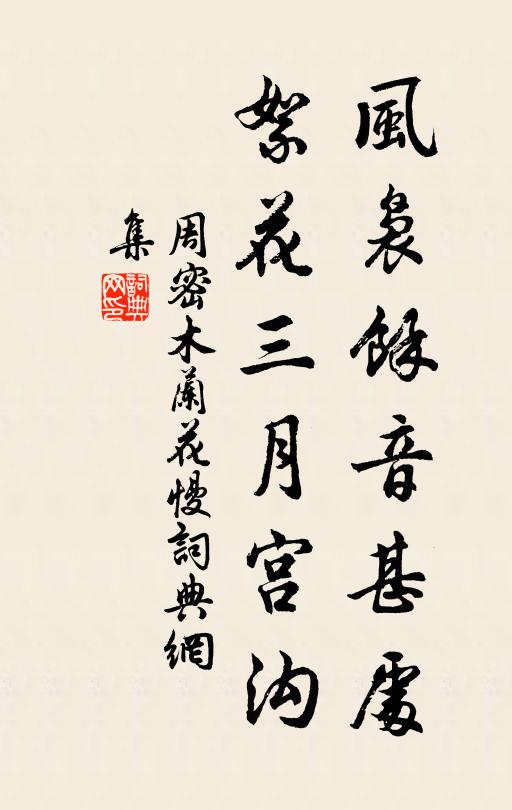 風裊餘音甚處
絮花三月宫沟
周密木蘭花慢詞典網
集
詞典
网印